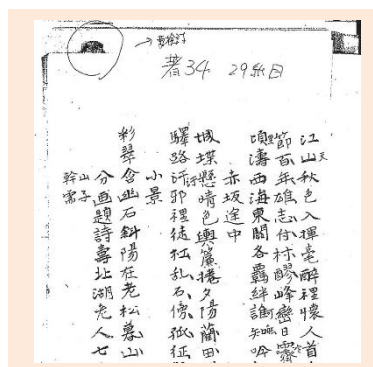 著34 29紙目
江山秋色入揮毫醉裡懷人首
天
節百年雄志付村醪峰巒日霽
頃濤西海東關各羈絆誰知吟
赤坂途中
城堞懸晴色輿簾捲夕陽藺田
驛路河邪裡徒杠乱石傍孤征
小景
彩翠含幽石斜陽在老松暮山
分画題詩壽北湖老人七
山子
幹